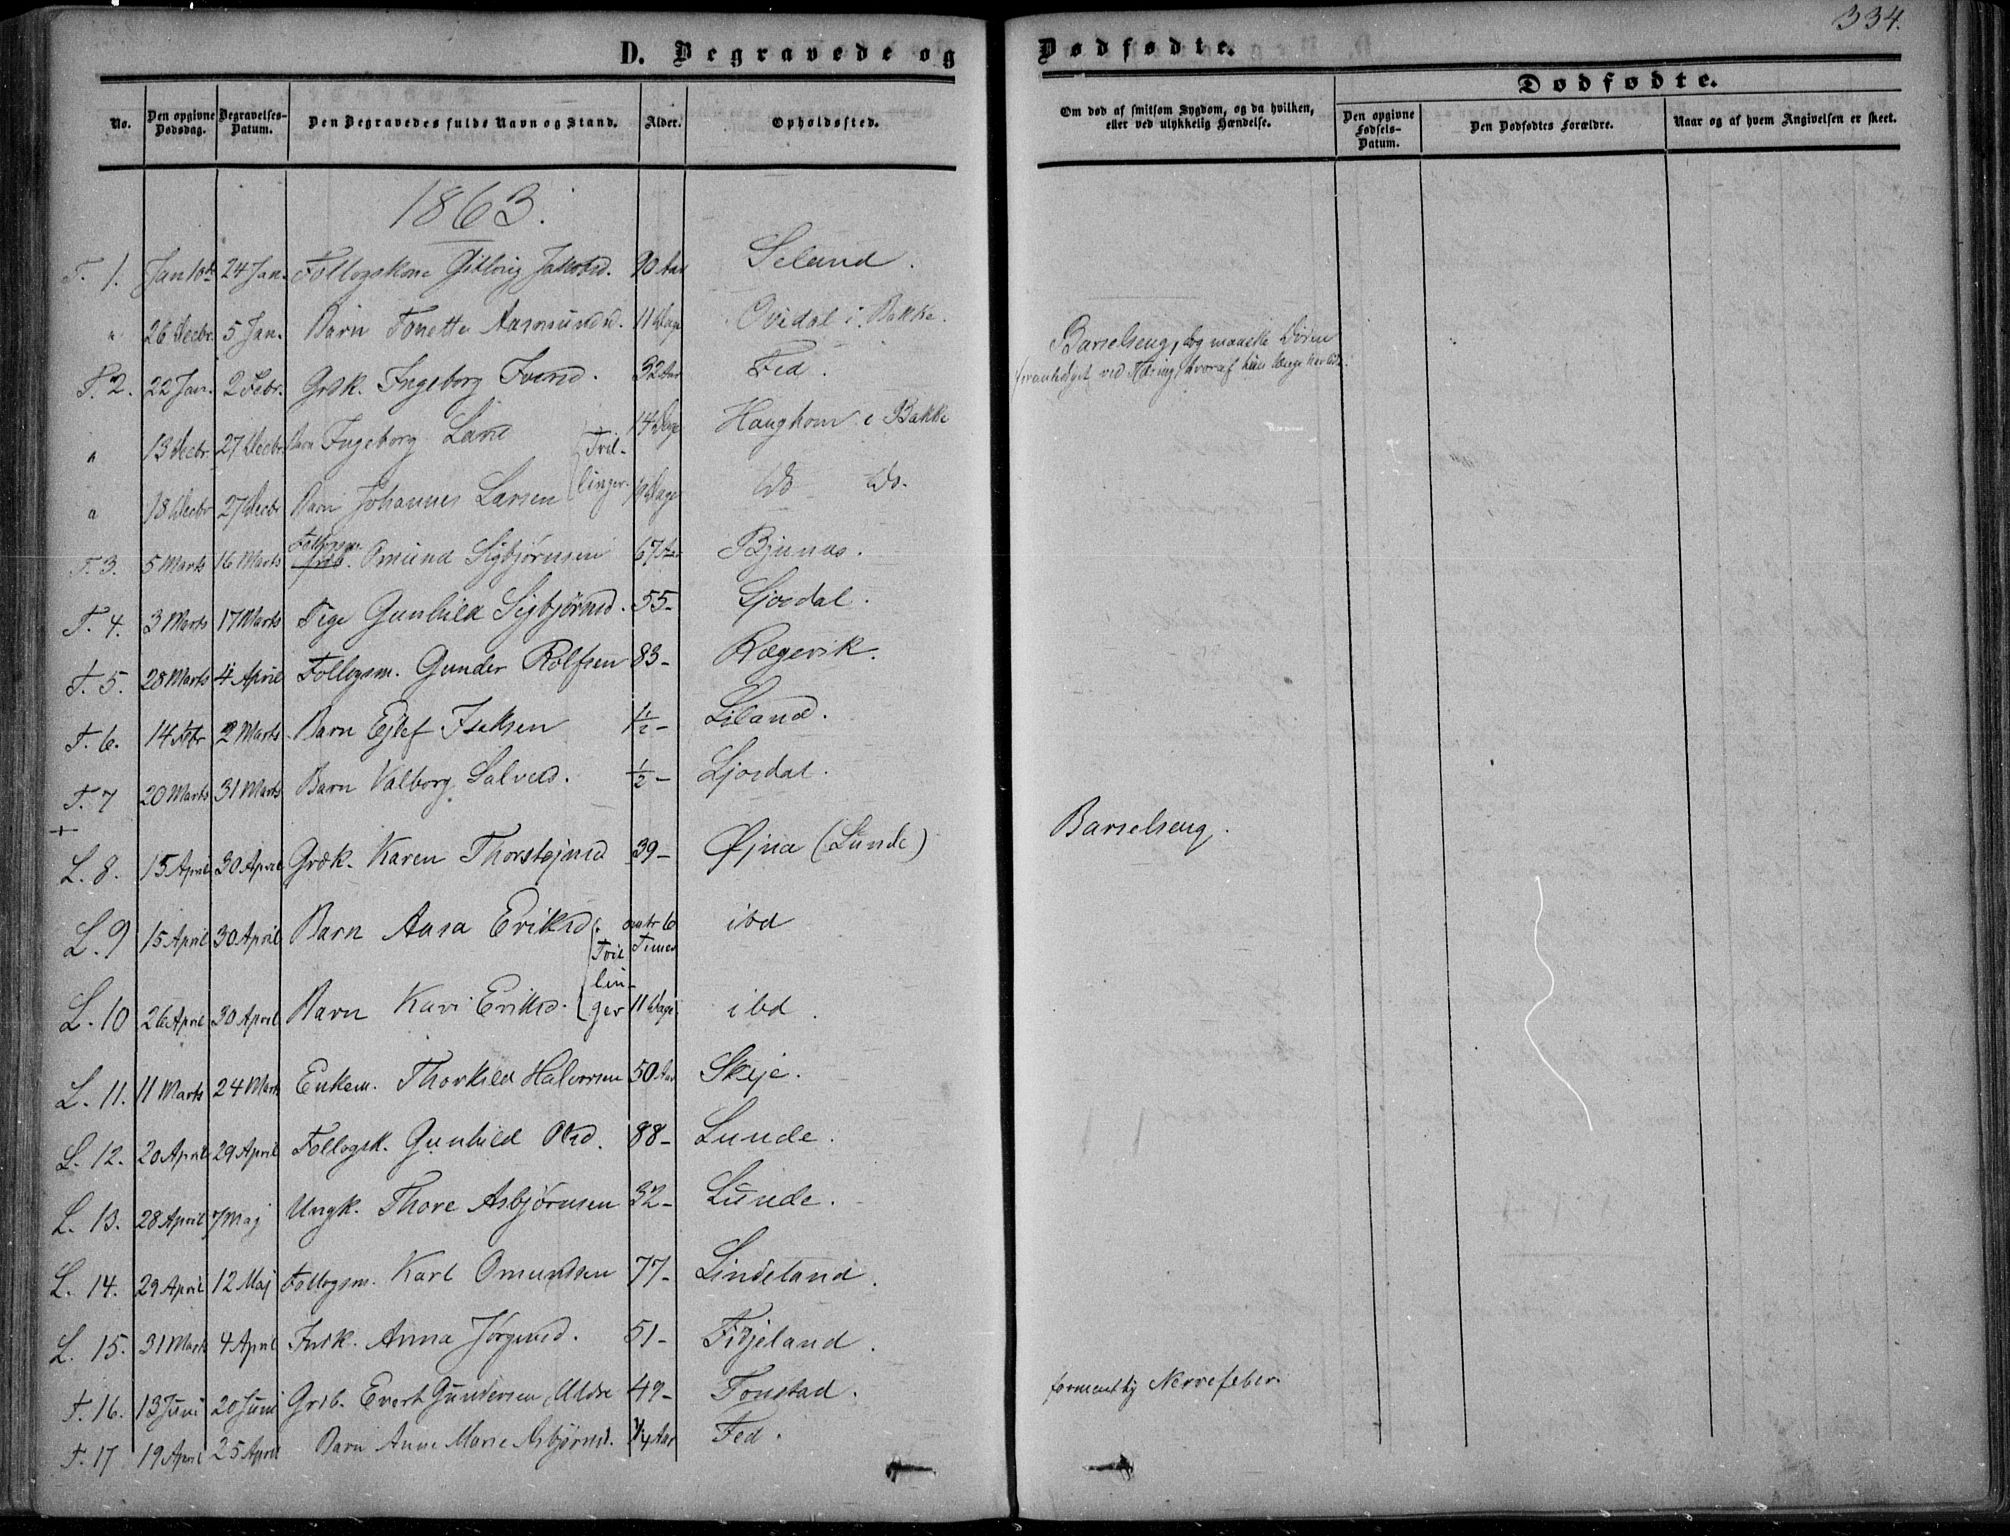 334.
D. Begravede og Dødfødte.
No. Den opgivne Dødsdag. Begravelses-Datum. Den Begravedes fulde Navn og Stand. Alder. Opholdssted. Om død af smitsom Sygdom, og da hvilken, eller ved ulykkelig Hændelse. Dødfødte.
Den opgivne Fødsels-Datum. Den Dødfødtes Forældre. Naar og af hvem Angivelsen er skeet.
1863.
F. 1. Jan 10de 24 Jan. Follogskone Jakobsd. 90 Aar Seland.
" 26 Decbr. 5 Jan. Barn Tonette Aasmundsd. 11 Dage Ovidal i Bakke.
F. 2. 22 Jan. 2 Febr. Grdk. Ingeborg Iversd. 32 Aar Fed. Barselseng, dog maaskee Døden
foranlediget ved hvoraf hun længe har lidt.
" 13 Decbr. 27 Decbr. Barn Ingeborg Larsd 14 Dage Haughom i Bakke
" 18 Decbr 27 Decbr Barn Johannes Larsen Tvillinger. Dage do do.
F. 3. 5 Marts 16 Marts Follogsm. Omund Sigbjørnsen 67 Aar Bjunas.
F. 4. 3 Marts 17 Marts Pige Gunhild Sigbjørnsd. 55 - Ljosdal.
F. 5. 28 Marts 4 April Follogsm. Gunder Rolfsen 83 - Rægevik.
F. 6. 14 Febr 2 Marts Barn Ejlef Isaksen 1/2 - Liland.
F. 7 20 Marts 31 Marts Barn Valborg Salvesd. 1/2 - Ljosdal.
+
L. 8. 15 April 30 April Grdk. Karen Thorstejnsd 39 - Øjna (Lunde) Barselseng.
L. 9 15 April 30 April Barn Aasa Eriksd. omtr 6 Timer ibd
L. 10 26 April 30 April Barn Kari Eriksd. Tvillinger 11 Dage ibd.
L. 11. 11 Marts 24 Marts Enkem. Thorkild Halvorsen 50 Aar Skeje.
L. 12. 20 April 29 April Follogsk. Gunhild Olsd. 88 - Lunde.
L. 13. 28 April 7 Maj Ungk. Thore Asbjørnsen 32 - Lunde.
L. 14. 29 April 12 Maj Follogsm. Karl Omundsen 77 - Lindeland.
L. 15. 31 Marts 4 April Insk. Anna Jørgensd. 51 - Fidjeland.
F. 16. 13 Juni 20 Juni Grb. Evert Gundersen Uldre 49 - Tonstad. formentlig Nervefeber.
F. 17 19 April 25 April Barn Anne Marie Asbjørnsd. 1/4 Aar Fed.